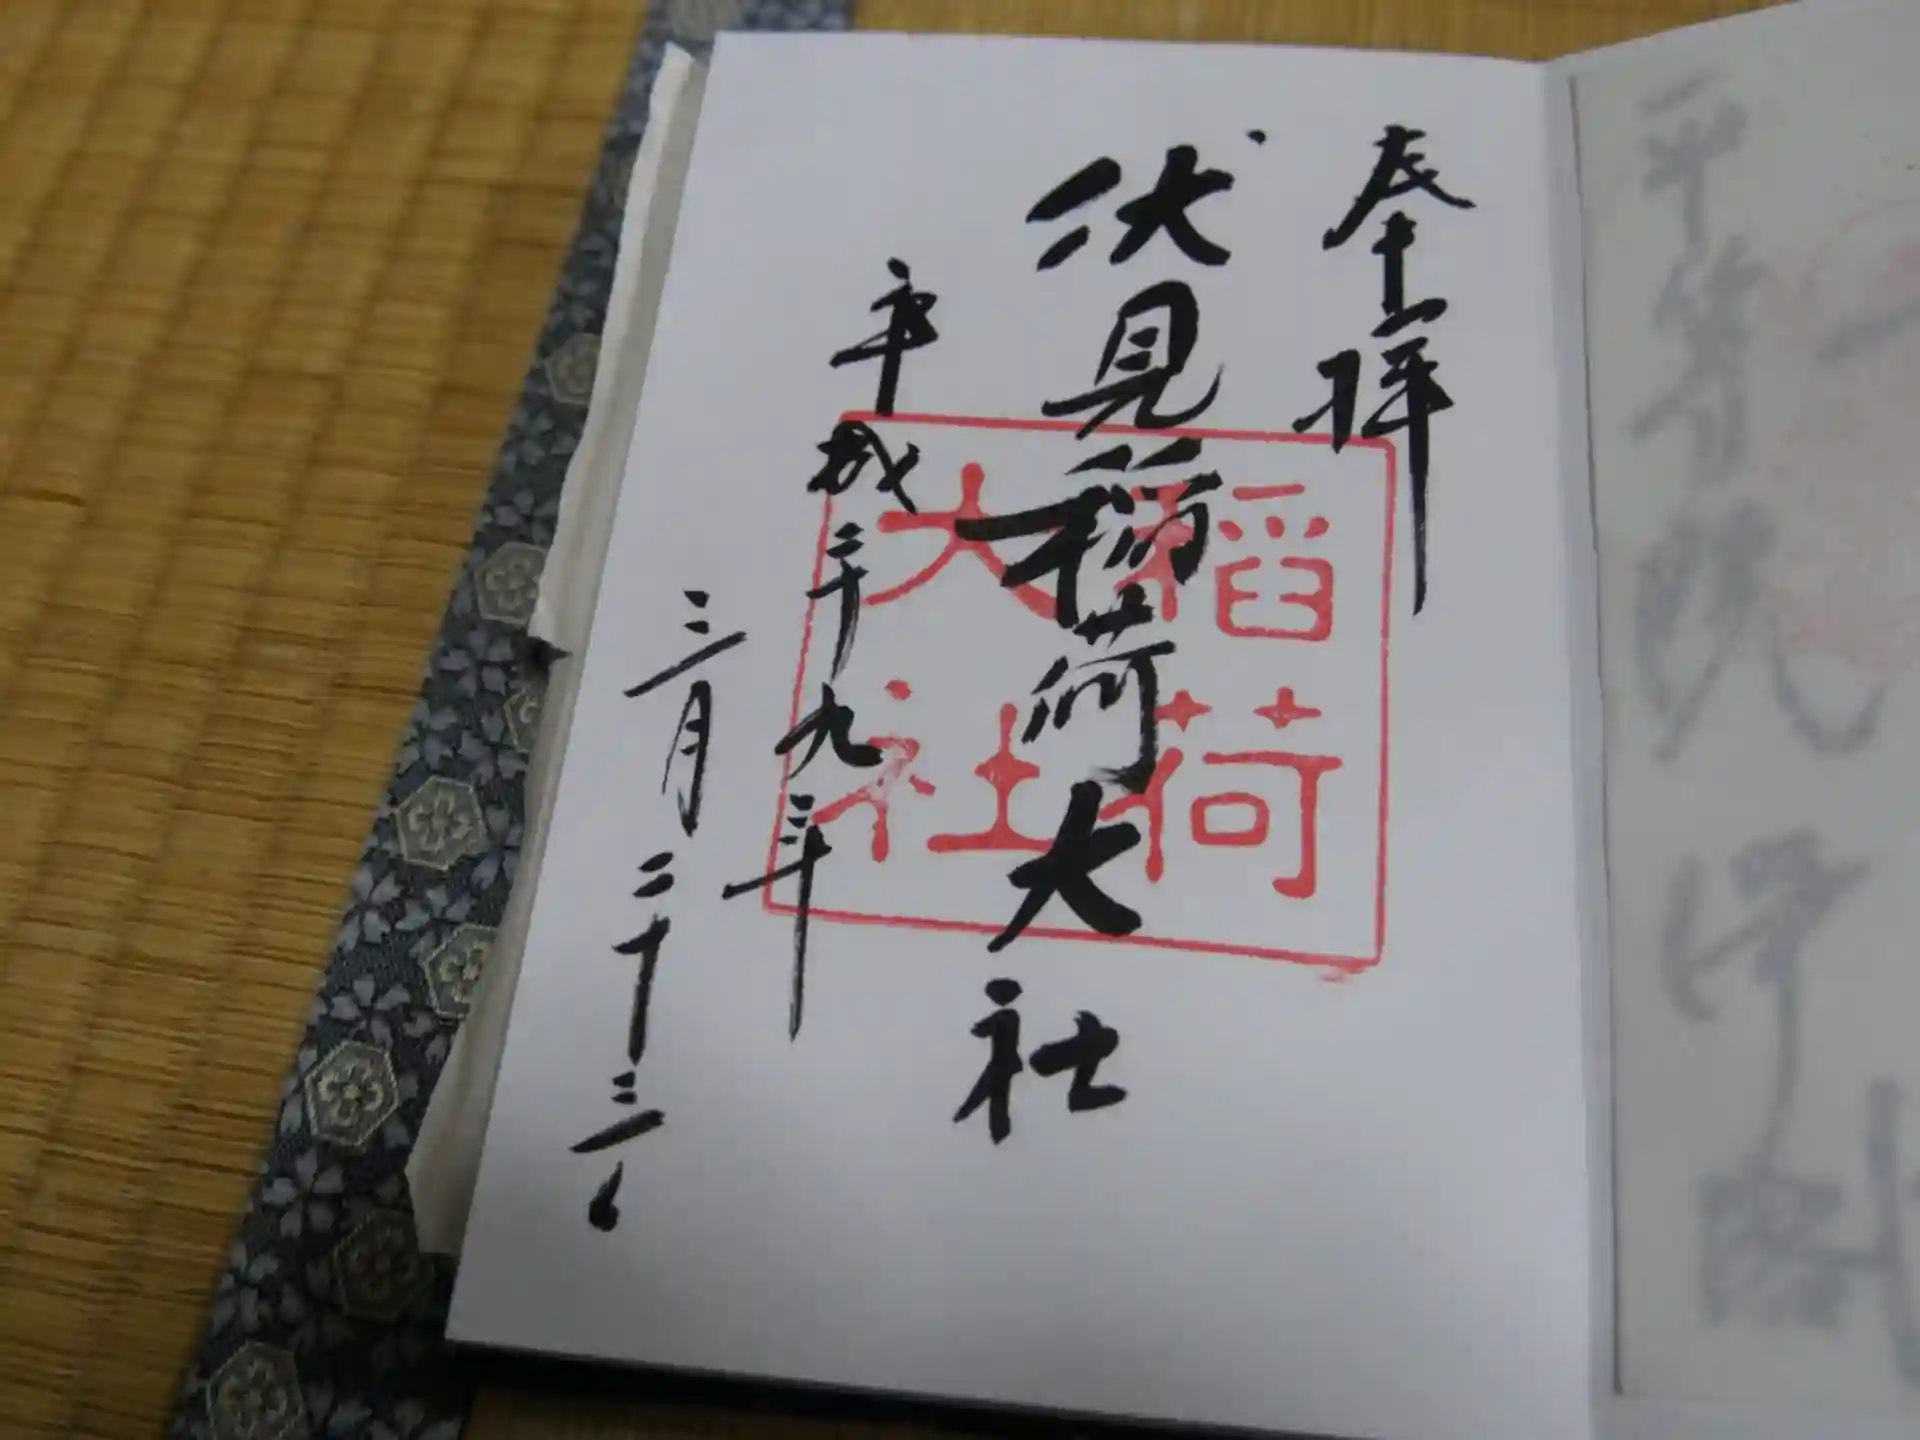 奉拝
伏見稲荷大社
稲荷
大社
平成二十九年
三月二十三日
平等院